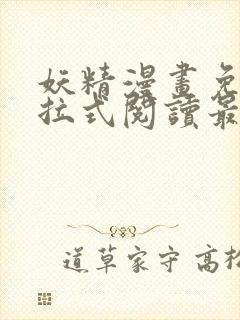 妖精漫畫免
拉式閱讀最
道草家守 高松